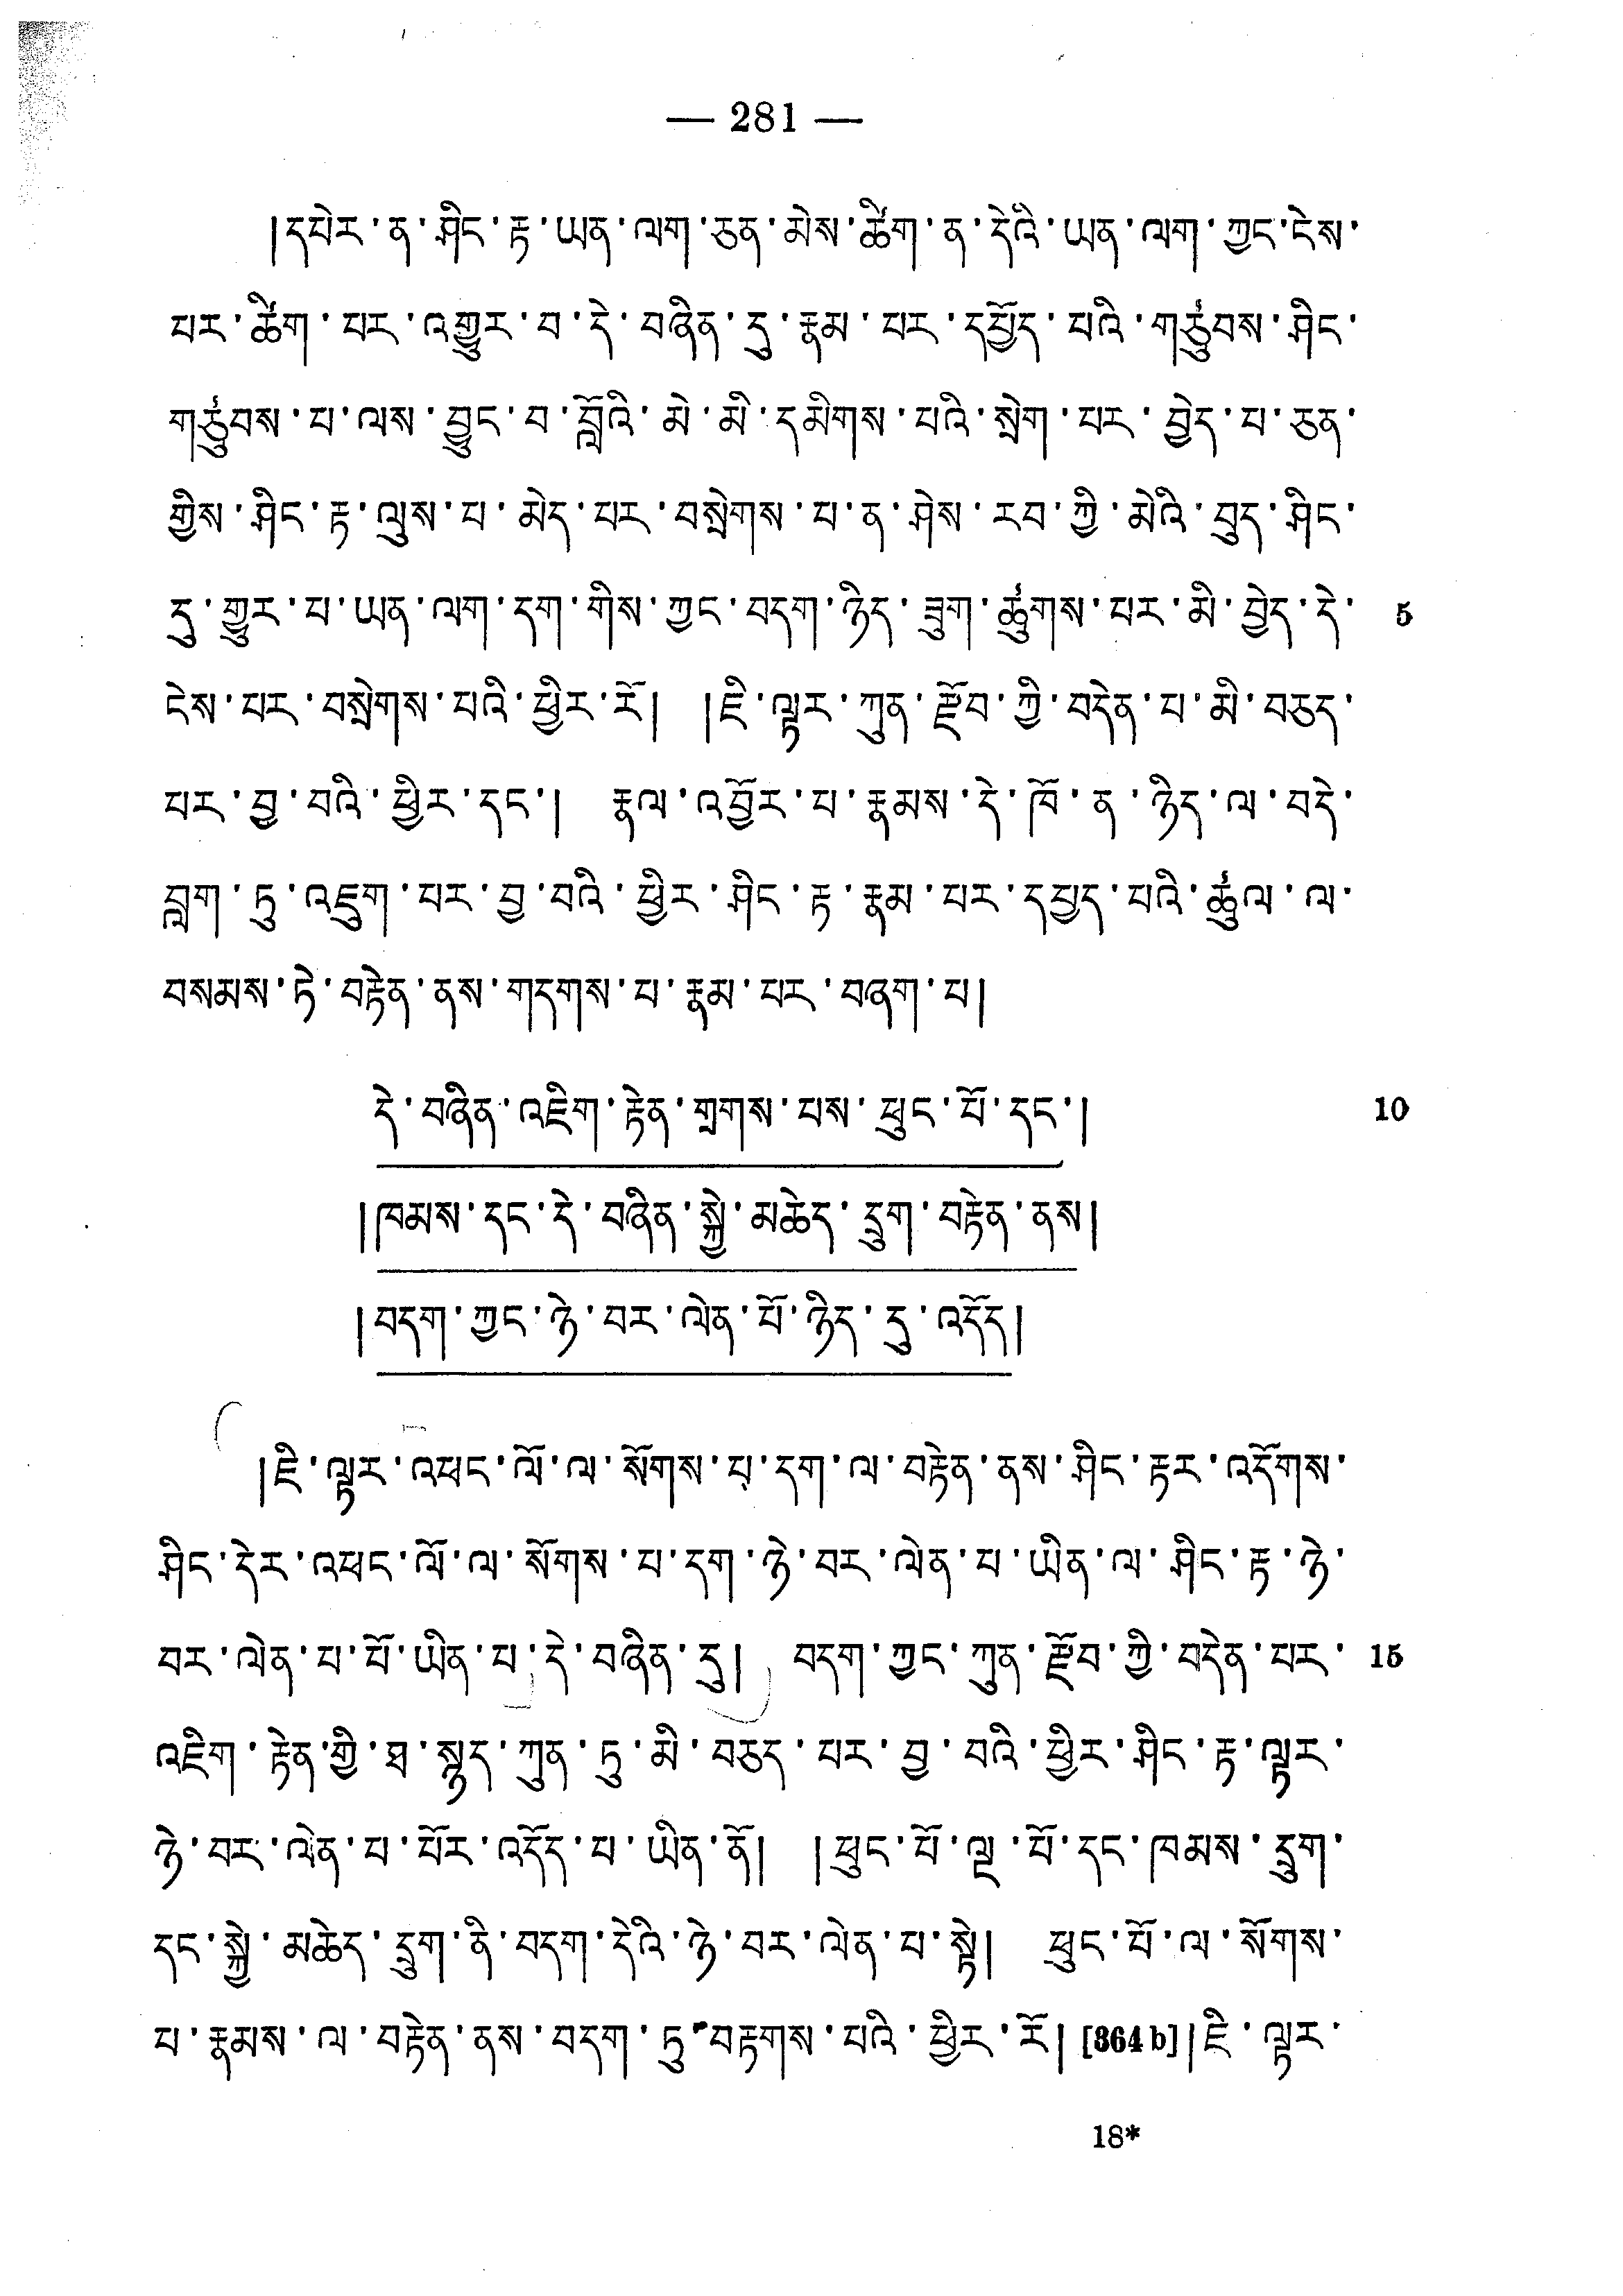 — 281 —
།དཔེར་ན་ཤིང་རྟ་ཡན་ལག་ཅན་མེས་ཚིག་ན་དེའི་ཡན་ལག་ཀྱང་ངེས་
པར་ཚིག་པར་འགྱུར་བ་དེ་བཞིན་དུ་རྣམ་པར་དཔྱོད་པའི་གཙུབས་ཤིང་
གཙུབས་པ་ལས་བྱུང་བ་བློའི་མེ་མི་དམིགས་པའི་སྲེག་པར་བྱེད་པ་ཅན་
གྱིས་ཤིང་རྟ་ལུས་པ་མེད་པར་བསྲེགས་པ་ན་ཤེས་རབ་ཀྱི་མེའི་བུད་ཤིང་
དུ་གྱུར་པ་ཡན་ལག་དག་གིས་ཀྱང་བདག་ཉིད་ཟུག་ཚུགས་པར་མི་བྱེད་དེ་ 5
ངེས་པར་བསྲེགས་པའི་ཕྱིར་རོ། །ཇི་ལྟར་ཀུན་རྫོབ་ཀྱི་བདེན་པ་མི་བཅད་
པར་བྱ་བའི་ཕྱིར་དང་། རྣལ་འབྱོར་པ་རྣམས་དེ་ཁོ་ན་ཉིད་ལ་བདེ་
བླག་ཏུ་འཇུག་པར་བྱ་བའི་ཕྱིར་ཤིང་རྟ་རྣམ་པར་དཔྱད་པའི་ཚུལ་ལ་
བསམས་ཏེ་བརྟེན་ནས་གདགས་པ་རྣམ་པར་བཞག་པ།
དེ་བཞིན་འཇིག་རྟེན་གྲགས་པས་ཕུང་པོ་དང་། 10
།ཁམས་དང་དེ་བཞིན་སྐྱེ་མཆེད་དྲུག་བརྟེན་ནས།
།བདག་ཀྱང་ཉེ་བར་ལེན་པོ་ཉིད་དུ་འདོད།
།ཇི་ལྟར་འཕང་ལོ་ལ་སོགས་པ་དག་ལ་བརྟེན་ནས་ཤིང་རྟར་འདོགས་
ཤིང་དེར་འཕང་ལོ་ལ་སོགས་པ་དག་ཉེ་བར་ལེན་པ་ཡིན་ལ་ཤིང་རྟ་ཉེ་
བར་ལེན་པ་པོ་ཡིན་པ་དེ་བཞིན་དུ། བདག་ཀྱང་ཀུན་རྫོབ་ཀྱི་བདེན་པར་ 15
འཇིག་རྟེན་གྱི་ཐ་སྙད་ཀུན་ཏུ་མི་བཅད་པར་བྱ་བའི་ཕྱིར་ཤིང་རྟ་ལྟར་
ཉེ་བར་ལེན་པ་པོར་འདོད་པ་ཡིན་ནོ། །ཕུང་པོ་ལྔ་པོ་དང་ཁམས་དྲུག་
དང་སྐྱེ་མཆེད་དྲུག་ནི་བདག་དེའི་ཉེ་བར་ལེན་པ་སྟེ། ཕུང་པོ་ལ་སོགས་
པ་རྣམས་ལ་བརྟེན་ནས་བདག་ཏུ་བརྟགས་པའི་ཕྱིར་རོ། [364 b] །ཇི་ལྟར་
18*